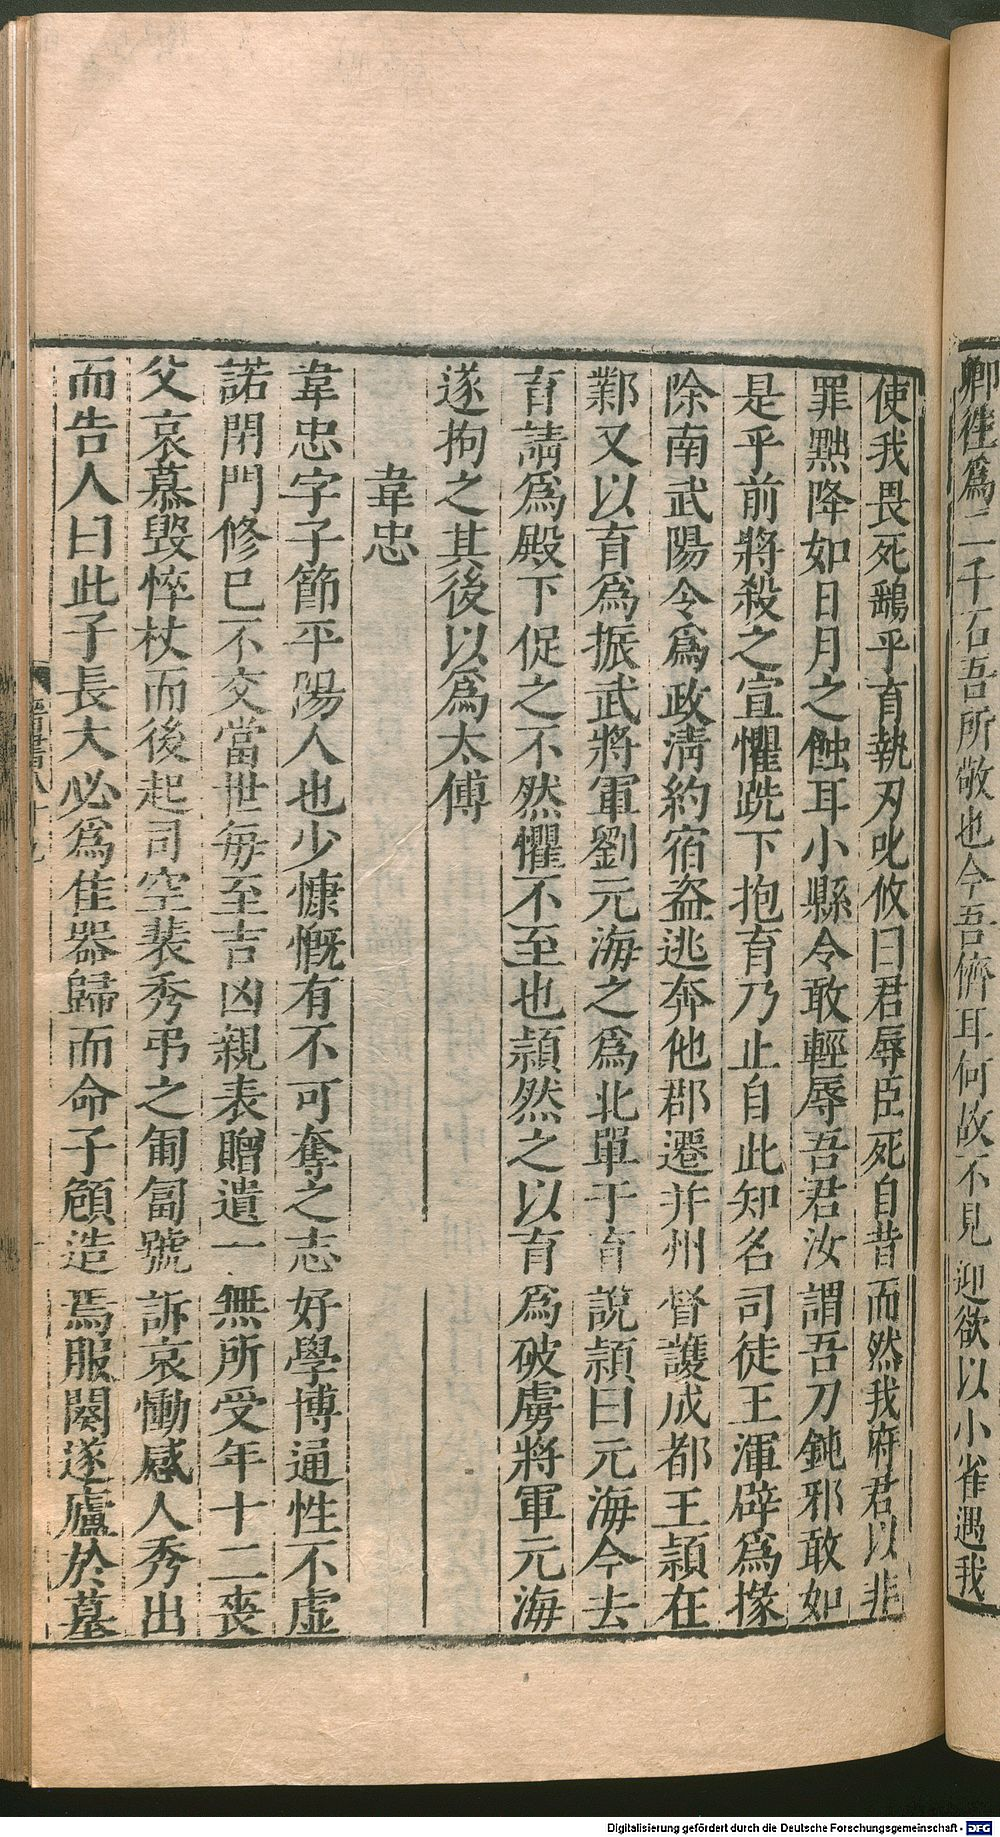 卿往爲二千石吾所敬也今吾儕耳何故不見迎欲以小雀遇我
使我畏死鷂乎育執刃叱攸曰君辱臣死自昔而然我府君以非
罪黜降如日月之蝕耳小縣令敢輕辱吾君汝謂吾刀鈍邪敢如
是乎前將殺之宣懼跣下抱育乃止自此知名司徒王渾辟爲掾
除南武陽令爲政淸約宿盗逃奔他郡遷并州督護成都王頴在
鄴又以育爲振武將軍劉元海之爲北單于育說頴曰元海今去
育請爲殿下促之不然懼不至也頴然之以育爲破虜將軍元海
遂拘之其後以爲太傅
韋忠
韋忠字子節平陽人也少慷慨有不可奪之志好學博通性不虛
諾閉門修已不交當世每至吉凶親表贈遺一無所受年十二喪
父哀慕毀悴杖而後起司空裴秀弔之匍匐號訴哀慟感人秀出
而告人曰此子長大必爲佳器歸而命子頠造焉服闋遂廬於墓
晉書八十九
Digitalisierung gefördert durch die Deutsche Forschungsgemeinschaft - DFG